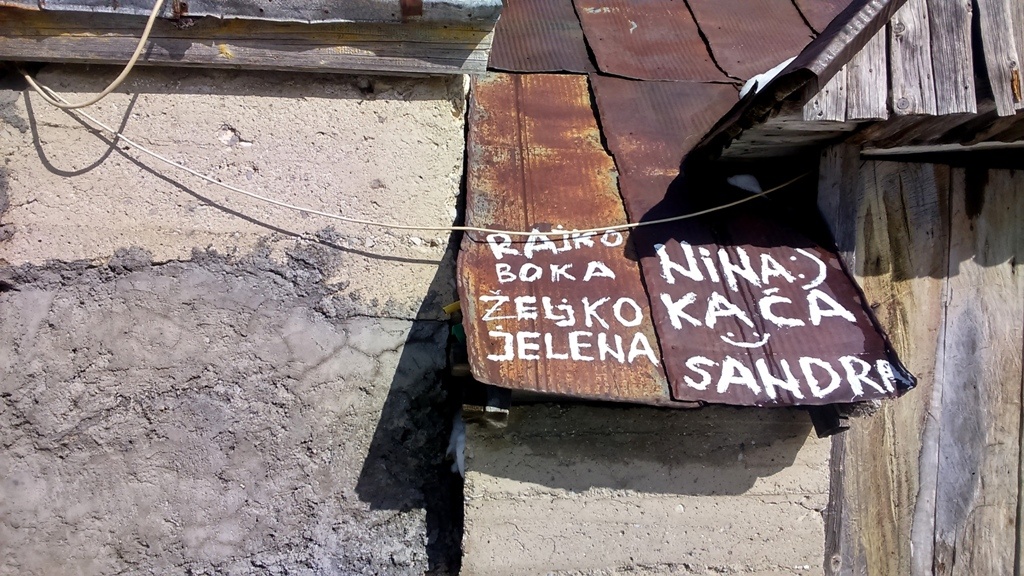 RAJKO
BOKA
ŽELJKO
JELENA
NiNA:)
KAĆA
SANDRA